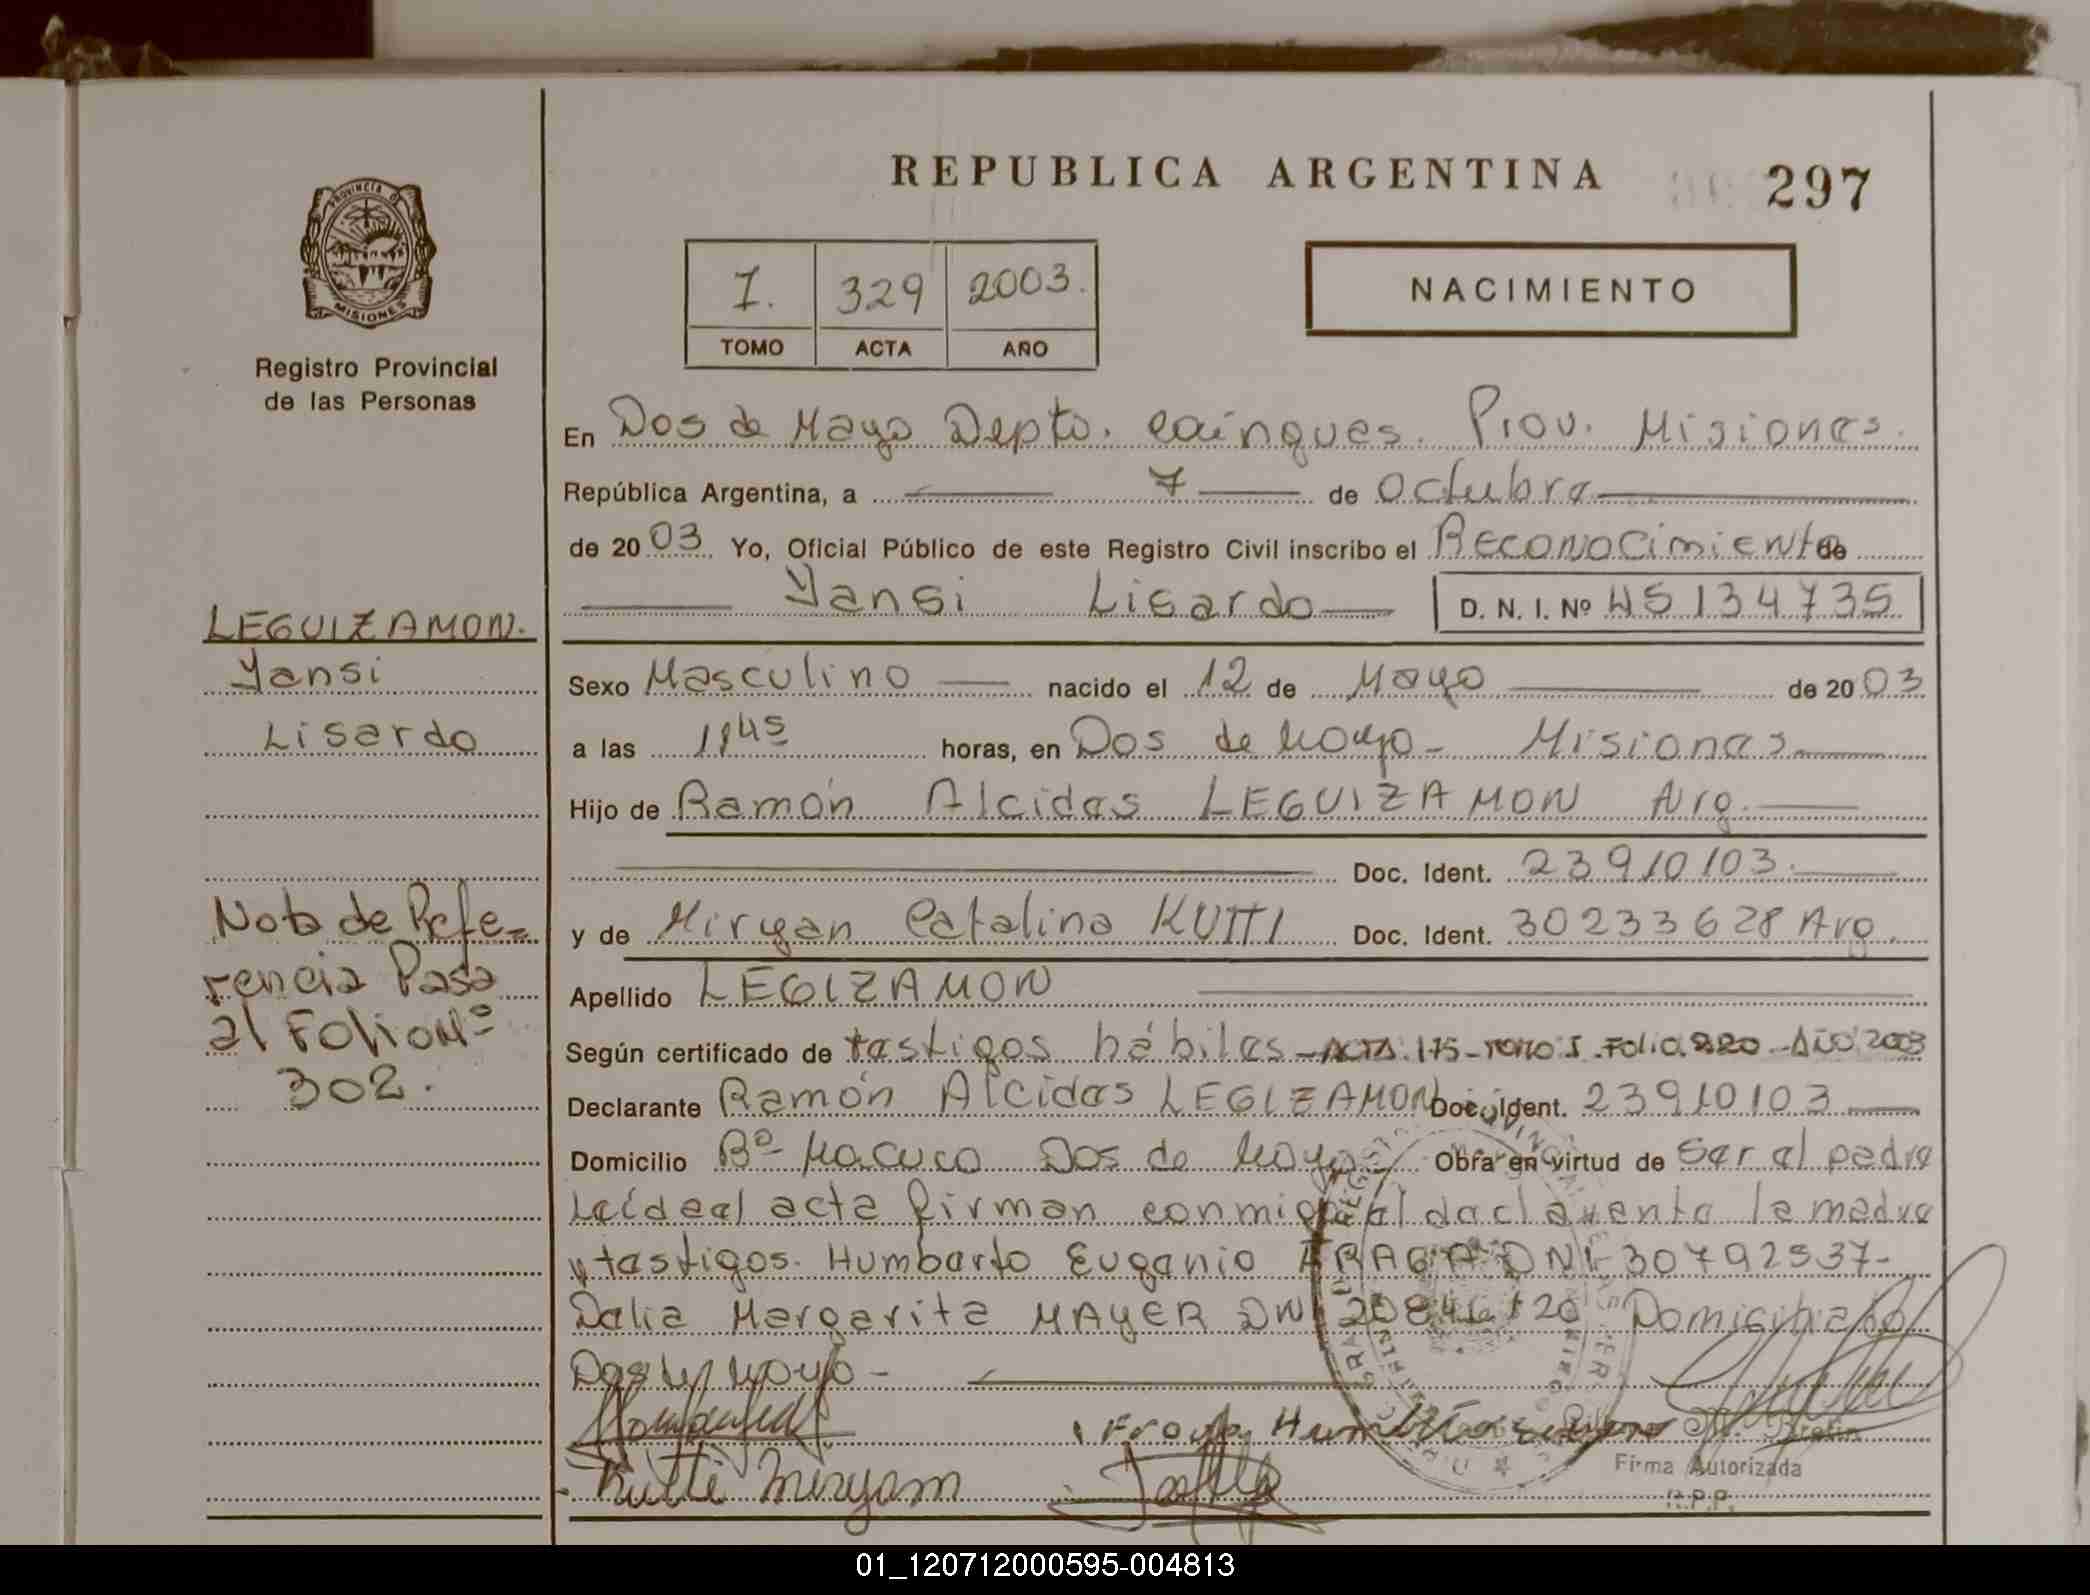 REPUBLICA ARGENTINA
297
PROVINCIA DE
MISIONES
Registro Provincial
de las Personas
I. 329 2003.
TOMO ACTA AÑO
NACIMIENTO
En Dos de Mayo Depto. Cainguas. Prov. Misiones.
República Argentina, a 7 de Octubre
de 2003. Yo, Oficial Público de este Registro Civil inscribo el Reconocimiento de
Yansi Lisardo D. N. I. Nº 45134735
LEGUIZAMON.
Yansi
Lisardo
Sexo Masculino nacido el 12 de Mayo de 2003
a las 11 45 horas, en Dos de Mayo - Misiones
Hijo de Ramón Alcides LEGUIZAMON Arg.
Doc. Ident. 23910103.
y de Miryan Catalina KUTTI Doc. Ident. 30233628 Arg.
Apellido LEGIZAMON
Nota de Refe=
rencia Pasa
al Folio Nº
302.
Según certificado de testigos hábiles - ACTA: 175 - TOMO I - Folio 220 - AÑO 2003
Declarante Ramón Alcides LEGIZAMON Doc. Ident. 23910103
Domicilio Bº Macuco Dos de Mayo Obra en virtud de ser el padre
Leída el acta firman conmigo el declarante la madre
y testigos. Humberto Eugenio DNI 30792537-
Delia Margarita MAYER DNI Domiciliados
Dos de Mayo -
Kutti Miryam
Firma Autorizada
R.P.P.
01_120712000595-004813